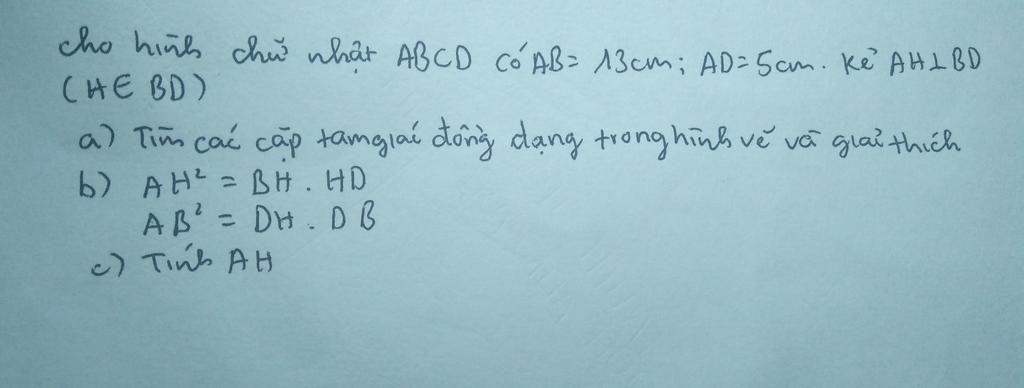 cho hình chữ nhật ABCD có AB = 13cm; AD = 5cm. Kẻ AH ⊥ BD
(H ∈ BD)
a) Tìm các cặp tam giác đồng dạng trong hình vẽ và giải thích
b) AH² = BH . HD
AB² = DH . DB
c) Tính AH